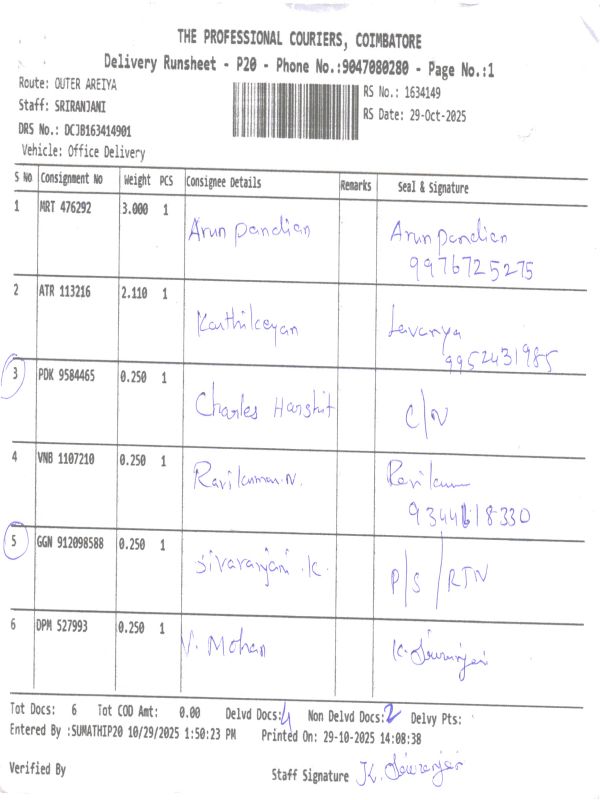 THE PROFESSIONAL COURIERS, COIMBATORE
Delivery Runsheet - P20 - Phone No.:9047080280 - Page No.:1
Route: OUTER AREIYA
RS No.: 1634149
Staff: SRIRANJANI
RS Date: 29-Oct-2025
DRS No.: DCJB163414901
Vehicle: Office Delivery
S No Consignment No Weight PCS Consignee Details Remarks Seal & Signature
1 MRT 476292 3.000 1 Arun pandian Arun pandian
9976725275
2 ATR 113216 2.110 1 Karthikeyan Lavanya
9952431985
3 PDK 9584465 0.250 1 Charles Harshit C/N
4 VNB 1107210 0.250 1 Ravikumar.N. Ravikum
9344618330
5 GGN 912098588 0.250 1 Sivaranjani .K. P/S/RTN
6 DPM 527993 0.250 1 V. Mohan
Tot Docs: 6 Tot COD Amt: 0.00 Delvd Docs: 4 Non Delvd Docs: 2 Delvy Pts:
Entered By :SUMATHIP20 10/29/2025 1:50:23 PM Printed On: 29-10-2025 14:08:38
Verified By Staff Signature